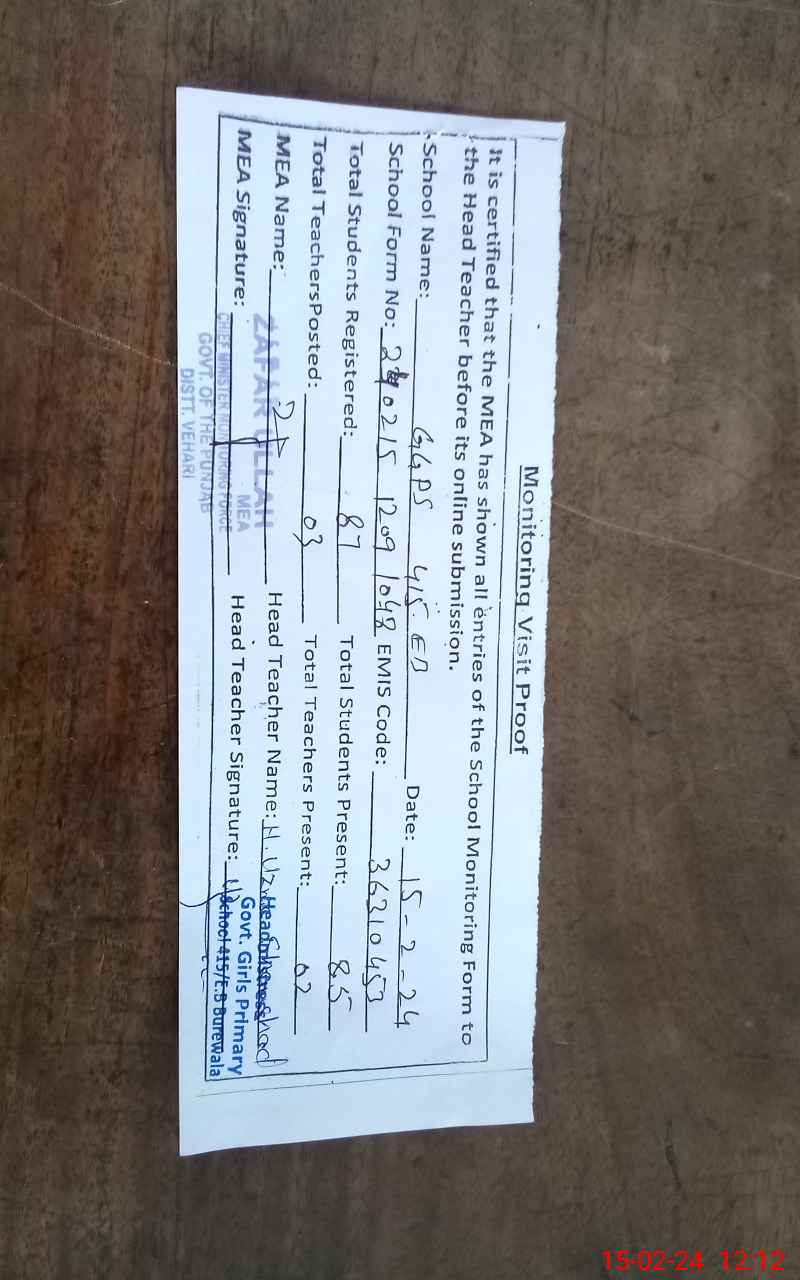 Monitoring Visit Proof
It is certified that the MEA has shown all entries of the School Monitoring Form to
the Head Teacher before its online submission.
School Name: GGPS 415. EB Date: 15-2-24
School Form No: 240215 1209 1048 EMIS Code: 36310453
Total Students Registered: 87 Total Students Present: 85
Total TeachersPosted: 03 Total Teachers Present: 02
MEA Name: ZAFAR ULLAH Head Teacher Name: H. Headmistress
MEA
MEA Signature: Head Teacher Signature:
CHIEF MINISTER MONITORING FORCE
GOVT. OF THE PUNJAB
DISTT. VEHARI
Govt. Girls Primary
School 415/E.B Burewala
15-02-24 12:12